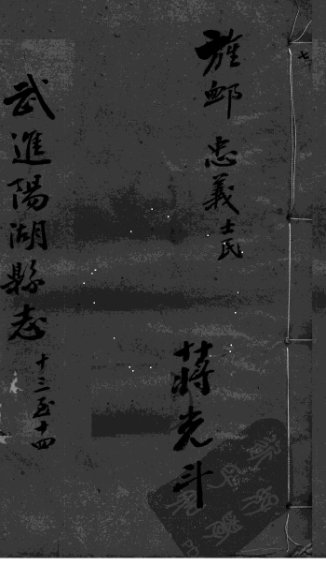 七
旌卹忠義士民
蔣光斗
武進陽湖縣志十三至十四